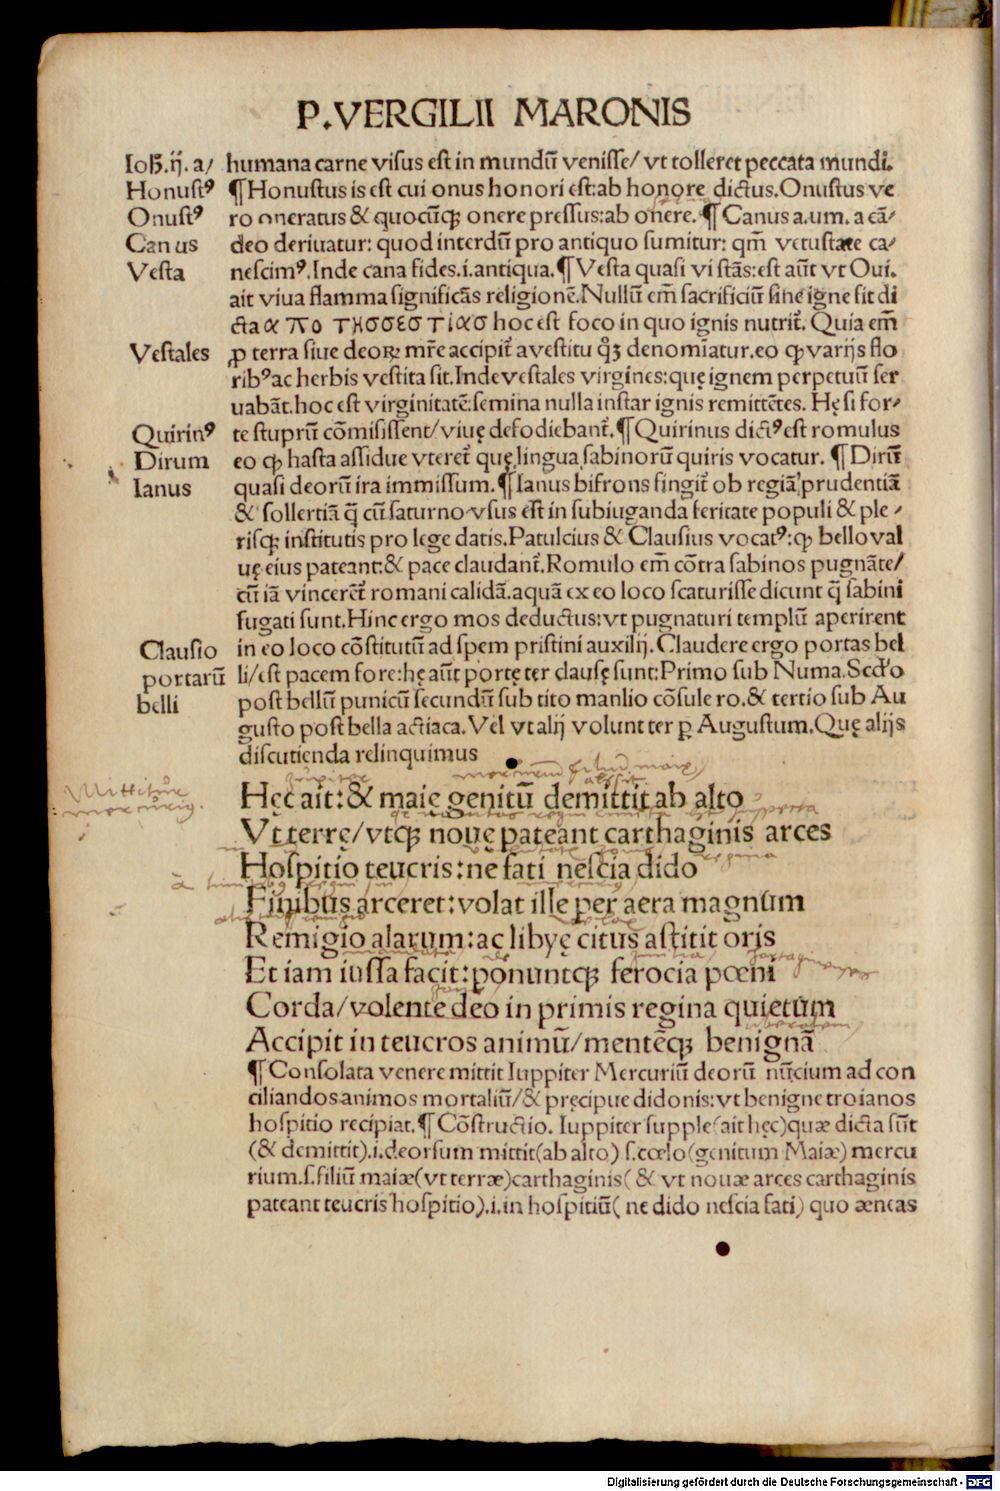 P. VERGILII MARONIS
Ioh̄.ij. a/ humana carne visus est in mundū venisse/ vt tolleret peccata mundi.
Honustꝰ ¶Honustus is est cui onus honori est:ab honore dictus.Onustus ve
Onustꝰ ro oneratus & quocūqꝫ onere pressus:ab onere. ¶ Canus a.um. a cā/
Canus deo deriuatur: quod interdū pro antiquo sumitur: qm̄ vetustate ca/
Vesta nescimꝰ.Inde cana fides.i.antiqua.¶ Vesta quasi vi stās:est aūt vt Oui.
ait viua flamma significās religionē.Nullū em̄ sacrificiū sine igne fit di
cta α πο τησσεστιασ hoc est foco in quo ignis nutrit̄. Quia em̄
Vestales ꝓ terra siue deoꝝ mr̄e accipit̄ a vestitu q̊ꝫ denomīatur.eo ꝙ varijs flo
ribꝰ ac herbis vestita sit.Inde vestales virgines:quę ignem perpetuū ser
uabāt.hoc est virginitatē:semina nulla instar ignis remittētes. Hę si for/
Quirinꝰ te stuprū cōmisissent/ viuę defodiebant̄.¶ Quirinus dictꝰ est romulus
Dirum eo ꝙ hasta assidue vteret̄ quę lingua sabinorū quiris vocatur. ¶ Dirū
Ianus quasi deorū ira immissum.¶ Ianus bifrons fingit̄ ob regiā prudentiā
& sollertiā q̄ cū saturno vsus est in subiuganda feritate populi & ple/
risqꝫ institutis pro lege datis.Patulcius & Clausius vocatꝰ:ꝙ bello val
uę eius pateant:& pace claudant̄.Romulo em̄ cōtra sabinos pugnāte/
cū iā vincerēt̄ romani calidā.aquā ex eo loco scaturisse dicunt q̄ sabini
fugati sunt.Hinc ergo mos deductus:vt pugnaturi templū aperirent
Clausio in eo loco cōstitutū ad spem pristini auxilij.Claudere ergo portas bel
portarū li/est pacem fore:hę aūt portę ter clausę sunt:Primo sub Numa.Scd̄o
belli post bellū punicū secundū sub tito manlio cōsule ro.& tertio sub Au
gusto post bella actiaca.Vel vt alij volunt ter ꝑ Augustum.Quę alijs
discutienda relinquimus
Hęc ait:& maie genitū demittit ab alto
Mittitur
mercurius.
Vt terrę/vtqꝫ nouę pateant carthaginis arces
Hospitio teucris:ne fati nescia dido
Finibus arceret:volat ille per aera magnum
Remigio alarum:ac libyę citus astitit oris
Et iam iussa facit:ponuntqꝫ ferocia pœni
Corda/volente deo in primis regina quietum
Accipit in teucros animū/mentēqꝫ benignā
¶ Consolata venere mittit Iuppiter Mercuriū deorū nūcium ad con
ciliandos animos mortaliū/& pręcipue didonis:vt benigne troianos
hospitio recipiat.¶ Cōstructio. Iuppiter supple(ait hęc)quæ dicta sūt
(& demittit).i.deorsum mittit(ab alto) s.cœlo(genitum Maiæ) mercu
rium.s.filiū maiæ(vt terræ)carthaginis( & vt nouæ arces carthaginis
pateant teucris hospitio).i.in hospitiū( ne dido nescia fati) quo æneas
Digitalisierung gefördert durch die Deutsche Forschungsgemeinschaft - DFG